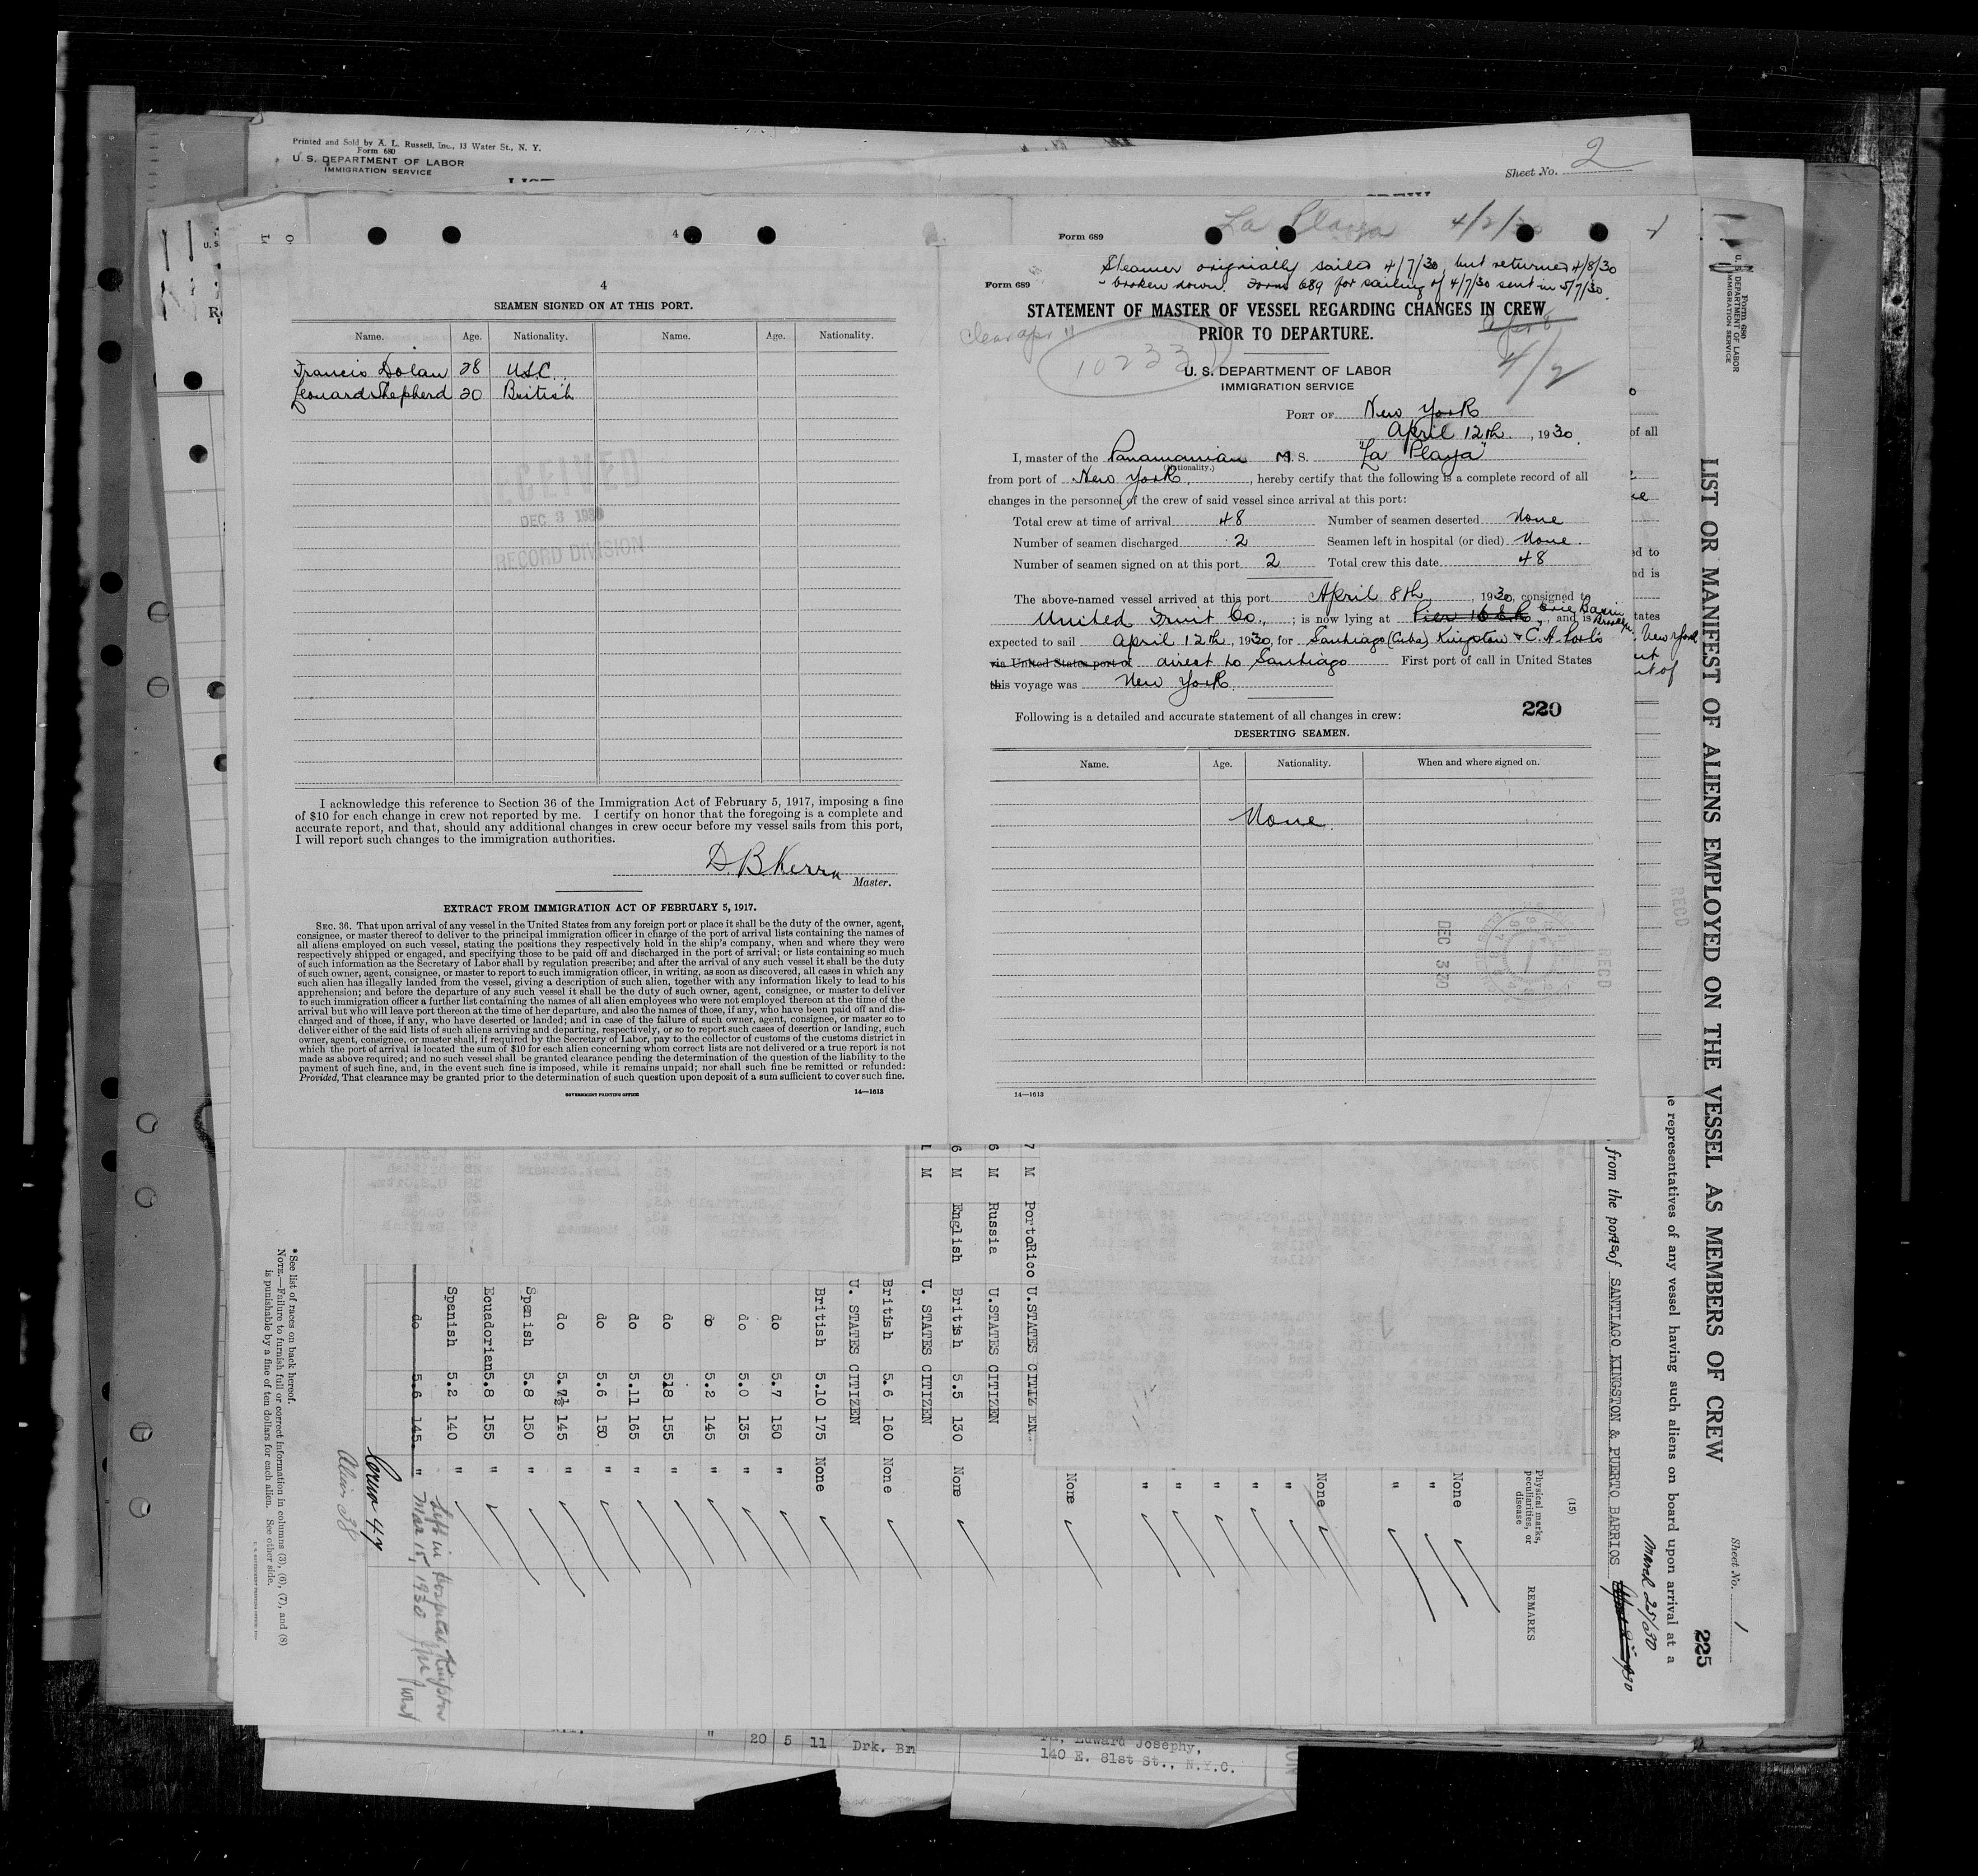 Printed and Sold by A. L. Russell, Inc., 13 Water St., N. Y.
Form 680
U. S. DEPARTMENT OF LABOR
IMMIGRATION SERVICE
Sheet No. 2
4
4
SEAMEN SIGNED ON AT THIS PORT.
Name. Age. Nationality. Name. Age. Nationality.
Francis Dolan 28 U.S.C.
Leonard Shepherd 20 British
RECEIVED
DEC 3 1930
RECORD DIVISION
I acknowledge this reference to Section 36 of the Immigration Act of February 5, 1917, imposing a fine
of $10 for each change in crew not reported by me. I certify on honor that the foregoing is a complete and
accurate report, and that, should any additional changes in crew occur before my vessel sails from this port,
I will report such changes to the immigration authorities.
D. B. Kerra
Master.
EXTRACT FROM IMMIGRATION ACT OF FEBRUARY 5, 1917.
SEC. 36. That upon arrival of any vessel in the United States from any foreign port or place it shall be the duty of the owner, agent,
consignee, or master thereof to deliver to the principal immigration officer in charge of the port of arrival lists containing the names of
all aliens employed on such vessel, stating the positions they respectively hold in the ship's company, when and where they were
respectively shipped or engaged, and specifying those to be paid off and discharged in the port of arrival; or lists containing so much
of such information as the Secretary of Labor shall by regulation prescribe; and after the arrival of any such vessel it shall be the duty
of such owner, agent, consignee, or master to report to such immigration officer, in writing, as soon as discovered, all cases in which any
such alien has illegally landed from the vessel, giving a description of such alien, together with any information likely to lead to his
apprehension; and before the departure of any such vessel it shall be the duty of such owner, agent, consignee, or master to deliver
to such immigration officer a further list containing the names of all alien employees who were not employed thereon at the time of the
arrival but who will leave port thereon at the time of her departure, and also the names of those, if any, who have been paid off and dis-
charged and of those, if any, who have deserted or landed; and in case of the failure of such owner, agent, consignee, or master so to
deliver either of the said lists of such aliens arriving and departing, respectively, or so to report such cases of desertion or landing, such
owner, agent, consignee, or master shall, if required by the Secretary of Labor, pay to the collector of customs of the customs district in
which the port of arrival is located the sum of $10 for each alien concerning whom correct lists are not delivered or a true report is not
made as above required; and no such vessel shall be granted clearance pending the determination of the question of the liability to the
payment of such fine, and, in the event such fine is imposed, while it remains unpaid; nor shall such fine be remitted or refunded:
Provided, That clearance may be granted prior to the determination of such question upon deposit of a sum sufficient to cover such fine.
GOVERNMENT PRINTING OFFICE 14—1613
La Playa 4/2/30
Form 689
Steamer originally sailed 4/7/30, but returned 4/8/30
Form 689 - broken down. Form 689 for sailing of 4/7/30 sent in 5/7/30.
STATEMENT OF MASTER OF VESSEL REGARDING CHANGES IN CREW
PRIOR TO DEPARTURE.
Clear apr 11
Apr 8
10233
4/2
U. S. DEPARTMENT OF LABOR
IMMIGRATION SERVICE
PORT OF New York
April 12th, 1930.
I, master of the Panamanian M. S. "La Playa"
(Nationality.)
from port of New York, hereby certify that the following is a complete record of all
changes in the personnel of the crew of said vessel since arrival at this port:
Total crew at time of arrival 48 Number of seamen deserted None
Number of seamen discharged 2 Seamen left in hospital (or died) None.
Number of seamen signed on at this port 2 Total crew this date 48
The above-named vessel arrived at this port April 8th, 1930, consigned to
United Fruit Co., ; is now lying at Pier 16 E.R. Erie Basin Brooklyn, and is
expected to sail April 12th, 1930, for Santiago (Cuba) Kingston & C.A. Ports
via United States port of direct to Santiago First port of call in United States
this voyage was New York.
220
Following is a detailed and accurate statement of all changes in crew:
DESERTING SEAMEN.
Name. Age. Nationality. When and where signed on.
None.
DEC 3 30
RECD
RECD
14—1613
Form 680
U. S. DEPARTMENT OF LABOR
IMMIGRATION SERVICE
LIST OR MANIFEST OF ALIENS EMPLOYED ON THE VESSEL AS MEMBERS OF CREW
Sheet No. 1
225
representatives of any vessel having such aliens on board upon arrival at a
March 25/30
from the ports of SANTIAGO KINGSTON & PUERTO BARRIOS
of all
ed to
nd is
tates
New York
(15)
Physical marks, peculiarities, or disease
REMARKS
None
"
"
None
"
"
"
"
"
None
7 M PortoRico U.STATES CITIZEN
6 M Russia U.STATES CITIZEN
6 M English British 5.5 130 None
M U. STATES CITIZEN
British 5.6 160 None
U. STATES CITIZEN
British 5.10 175 None
do 5.7 150 "
do 5.0 135 "
do 5.2 145 "
do 518 155 "
do 5.11 165 "
do 5.6 150 "
do 5.7½ 145 "
Spanish 5.8 150 "
Ecuadorian 5.8 155 "
Spanish 5.2 140 "
do 5.6 145. "
Left in hospital, Kingston
Mar 15, 1930
Crew 47
Alien 38
*See list of races on back hereof.
NOTE.—Failure to furnish full or correct information in columns (3), (6), (7), and (8)
is punishable by a fine of ten dollars for each alien. See other side.
" 20 5 11 Drk. Brn
Edward Josephy,
140 E. 81st St., N.Y.C.